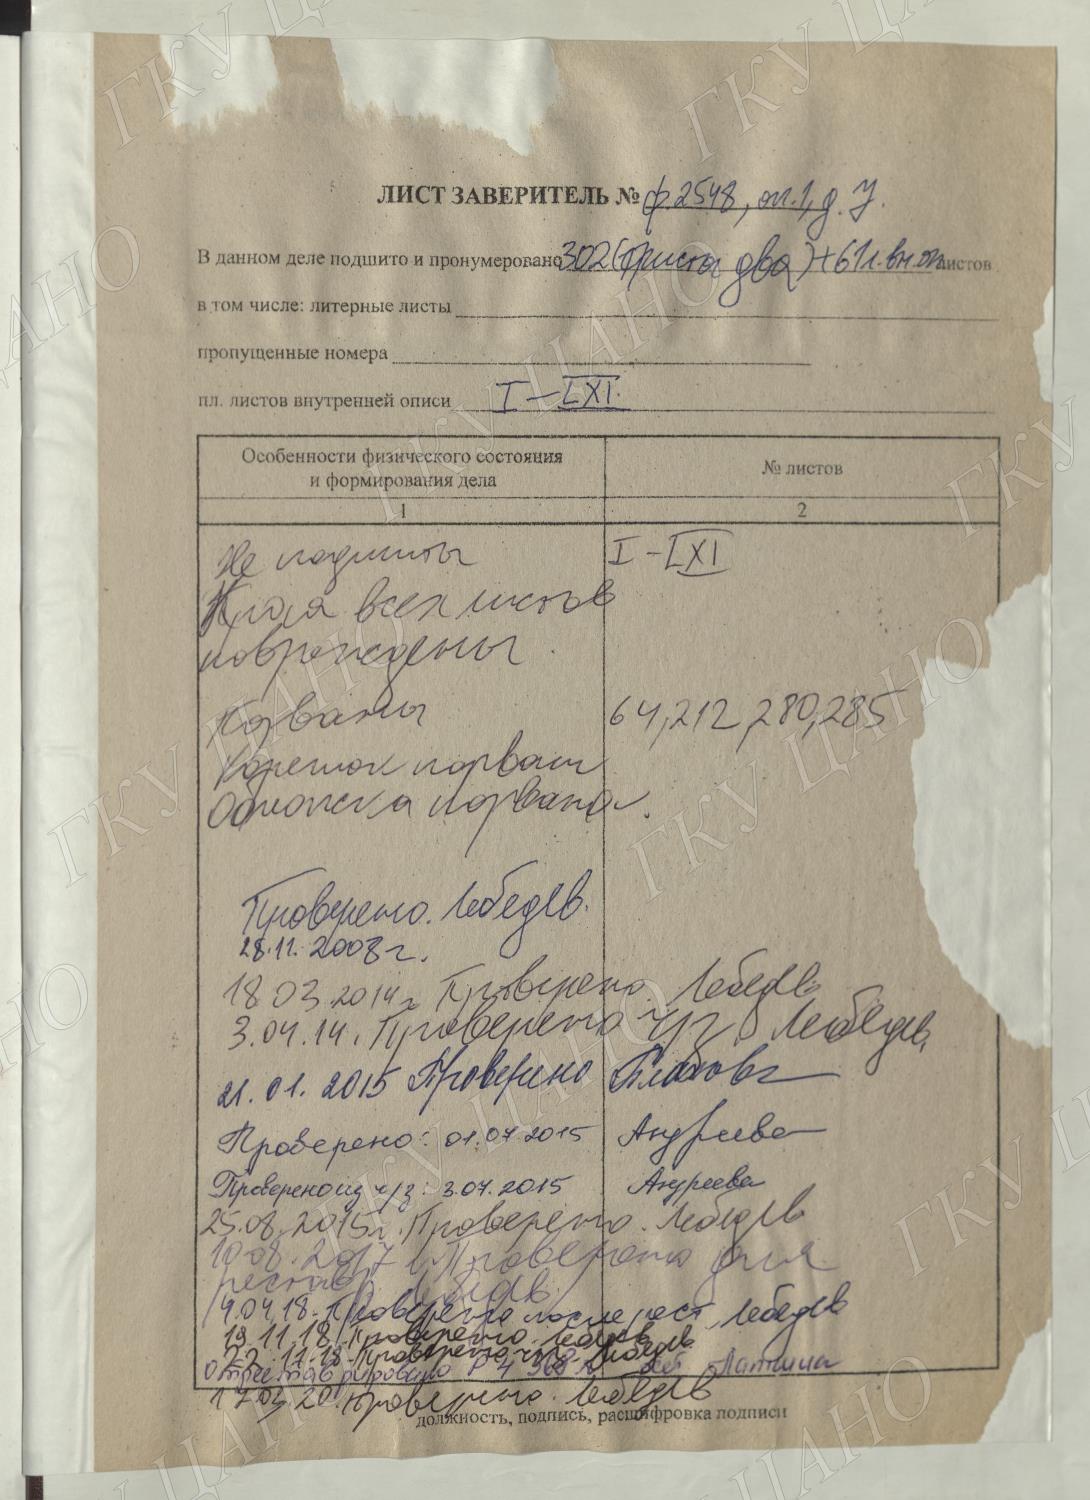 ЛИСТ ЗАВЕРИТЕЛЬ № ф. 2548, оп. 1, д. 7.
В данном деле подшито и пронумеровано 302 (триста два) + 61 л. вн. оп. листов
в том числе: литерные листы
пропущенные номера
пл. листов внутренней описи I – LXI.
Особенности физического состояния № листов
и формирования дела
1 2
Не подшиты I – LXI
Края всех листов
повреждены.
Порваны 64, 212, 280, 285
Корешок порван
Обложка порвана.
Проверено. Лебедев.
28.11.2008 г.
18.03.2014 г. Проверено. Лебедев
3.04.14. Проверено ч/з Лебедев.
21.01.2015 Проверено
Проверено: 01.07.2015 Андреева
Проверено ч/з: 3.07.2015 Андреева
25.08.2015 г. Проверено. Лебедев
10.08.2017 г. Проверено для
реставр. Лебедев.
4.04.18. Проверено после рест. Лебедев
19.11.18. Проверено. Лебедев
22.11.18. Проверено ч/з Лебедев
Отреставрировано
17.03.20. Проверено. Лебедев
должность, подпись, расшифровка подписи
ГКУ ЦАНО